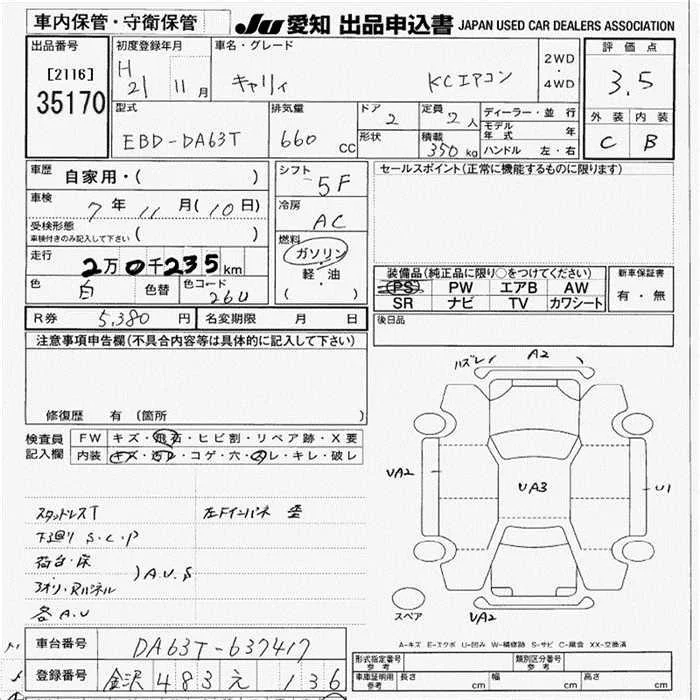 車内保管・守衛保管
JU 愛知 出品申込書 JAPAN USED CAR DEALERS ASSOCIATION
出品番号 初度登録年月 車名・グレード 2WD・4WD 評価点
[2116] H21 11月 キャリィ KCエアコン 3.5
35170
型式 排気量 ドア 定員 ディーラー・並行 外装 内装
EBD-DA63T 660CC 2 2人 モデル年式 年 C B
形状 積載 350kg ハンドル 左・右
車歴 自家用・( ) シフト 5F セールスポイント(正常に機能するものに限ります)
車検 7年11月(10日) 冷房 AC
受検形態
車検付きのみ記入して下さい ( )
走行 2万0千235km 燃料 ガソリン・軽・油 ( )
装備品(純正品に限り○をつけてください) 新車保証書
色 白 色替 色コード 26U
PS PW エアB AW 有・無
SR ナビ TV カワシート
R券 5,380円 名変期限 月 日 後日品
注意事項申告欄(不具合内容等は具体的に記入して下さい)
修復歴 有(箇所 )
検査員記入欄 FW キズ・飛石・ヒビ割・リペア跡・X要
内装 キズ・汚レ・コゲ・穴・スレ・キレ・破レ
ハズレ A2
UA2 UA3 U1
スペア UA2
スタッドレスT 左Fインパネ
下廻り S.C.P
荷台・床
アオリ・Rパネル ) A.U.S
各A.U
A-キズ E-エクボ U-凹み W-補修跡 S-サビ C-腐食 XX-交換済
車台番号 DA63T-637417
登録番号 金沢 483 え 136
形式指定番号 参考 類別区分番号 参考
車庫証明用 参考 長さ cm 幅 cm 高さ cm